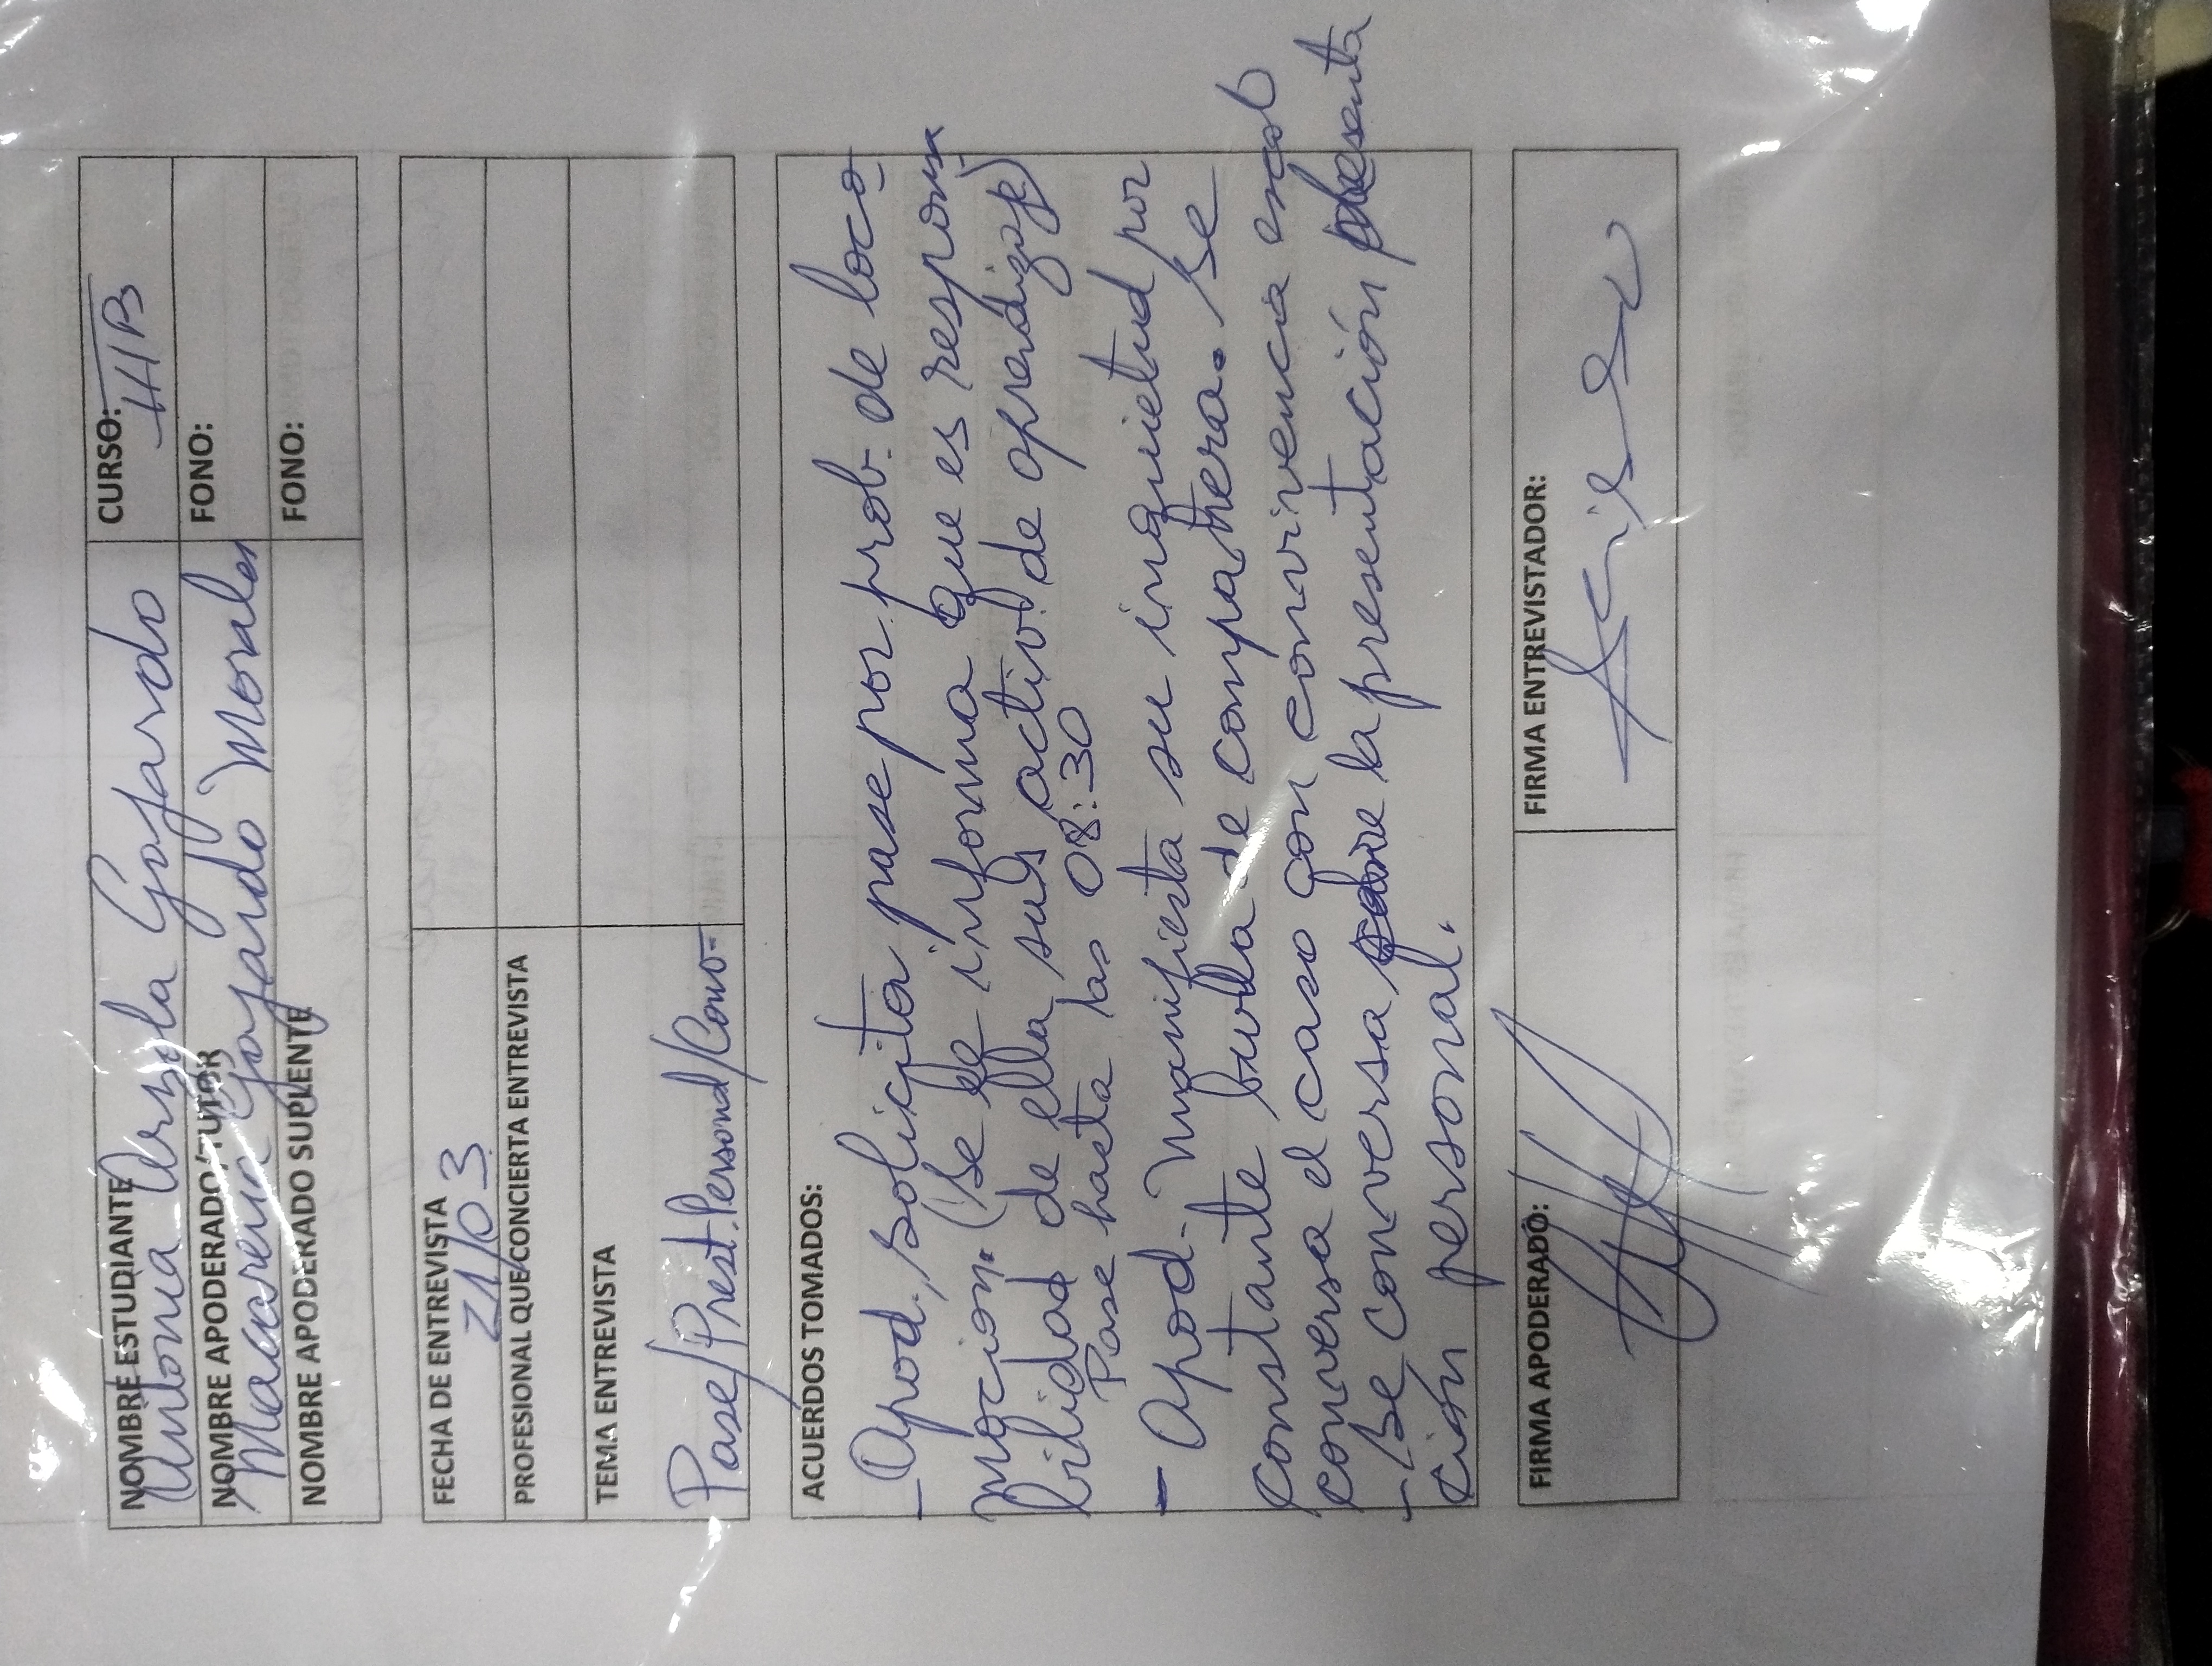 NOMBRE ESTUDIANTE CURSO:
Antonia Arzola Gajardo IIIB
NOMBRE APODERADO/TUTOR FONO:
Macarena Gajardo Morales
NOMBRE APODERADO SUPLENTE FONO:
FECHA DE ENTREVISTA
21/03
PROFESIONAL QUE CONCIERTA ENTREVISTA
TEMA ENTREVISTA
Pase/Prest.Personal/Conv.
ACUERDOS TOMADOS:
- Apod. solicita pase por prob. de loco
moción. (Se le informa que es responsa
bilidad de ella sus activd de aprendizaje)
Pase hasta las 08:30
- Apod. Manifiesta su inquietud por
constante burla de compañera. Se
conversa el caso con convivencia escol
- Se conversa sobre la presentación presenta
ción personal.
FIRMA APODERADO: FIRMA ENTREVISTADOR: